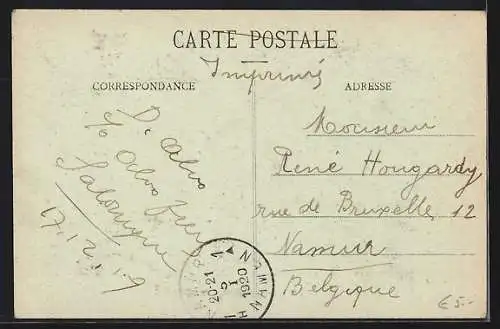 CARTE POSTALE
Imprimés
CORRESPONDANCE
D. Alvo
c/o Alvo
Salonique
ADRESSE
Monsieur
René Hougardy
rue de Bruxelle, 12
Namur
Belgique
NAMUR
20-21
1920
€5.-